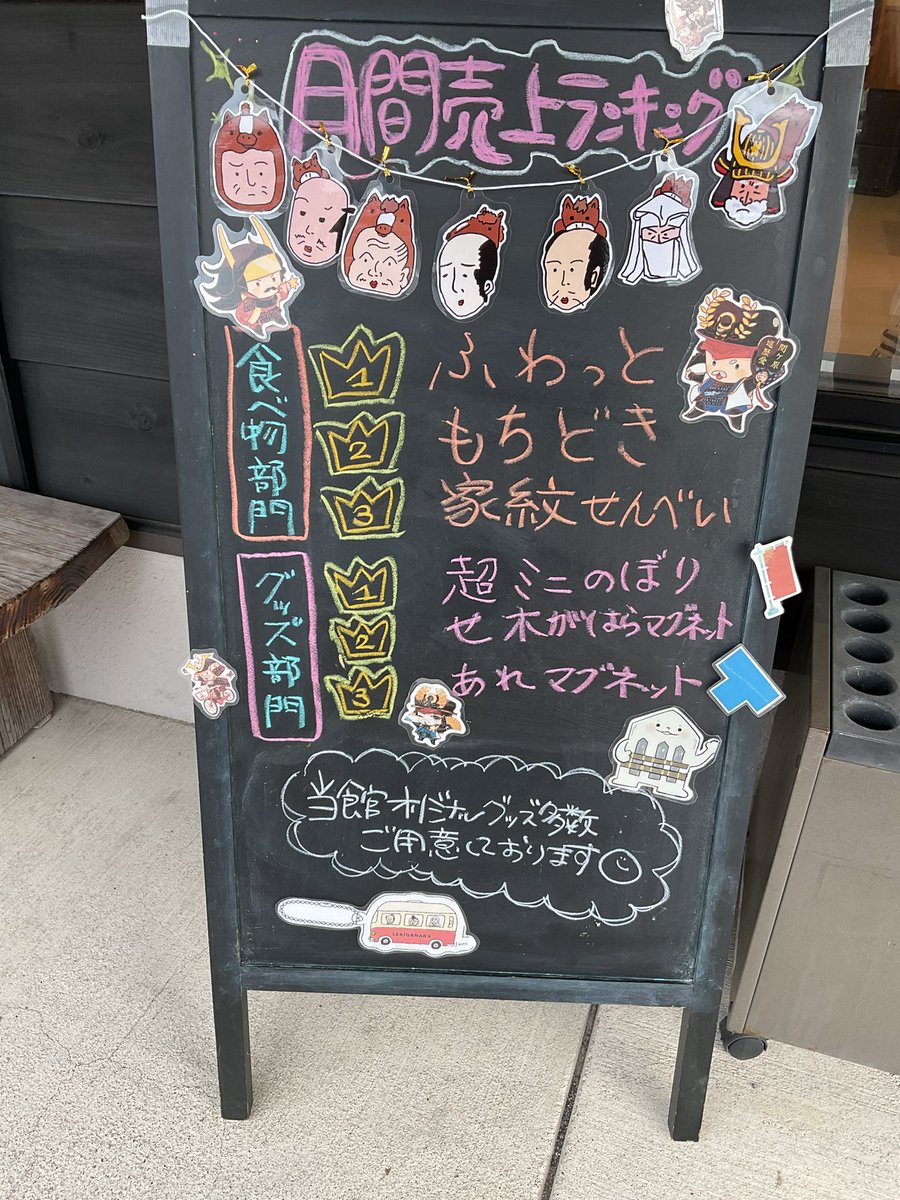 月間売上ランキング
関ヶ原
食べ物部門
1 ふわっと
2 もちどき
3 家紋せんべい
グッズ部門
1 超ミニのぼり
2 せ木がはらマグネット
3 あれマグネット
当館オリジナルグッズ多数
ご用意しております
SEKIGAHARA